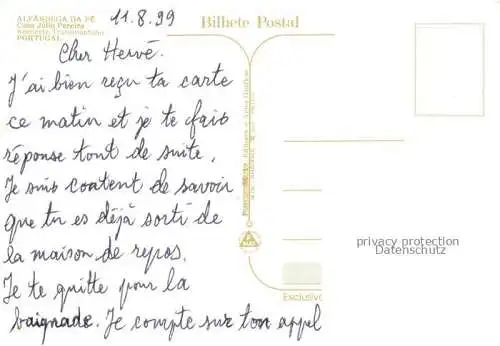 ALFÂNDEGA DA FÉ
Casa Júlio Pereira
Nordeste Transmontano
PORTUGAL
11.8.99
Bilhete Postal
Cher Hervé.
J'ai bien reçu ta carte
ce matin et je te fais
réponse tout de suite.
Je suis content de savoir
que tu es déjà sorti de
la maison de repos.
Je te quitte pour la
baignade. Je compte sur ton appel
privacy protection
Datenschutz
Exclusivo